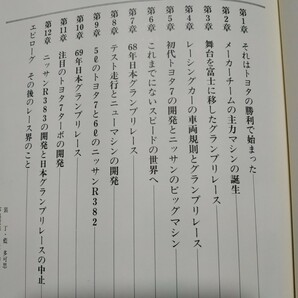 第1章 それはトヨタの勝利で始まった
第2章 メーカーチームの主力マシンの誕生
第3章 舞台を富士に移したグランプリレース
第4章 レーシングカーの車両規則とグランプリレース
第5章 初代トヨタ7の開発とニッサンのビッグマシン
第6章 これまでにないスピードの世界へ
第7章 68年日本グランプリレース
第8章 テスト走行とニューマシンの開発
第9章 5ℓのトヨタ7と6ℓのニッサンR382
第10章 69年日本グランプリレース
第11章 注目のトヨタ7ターボの開発
第12章 ニッサンR383の開発と日本グランプリレースの中止
エピローグ その後のレース界のこと
装丁・藍 多可思